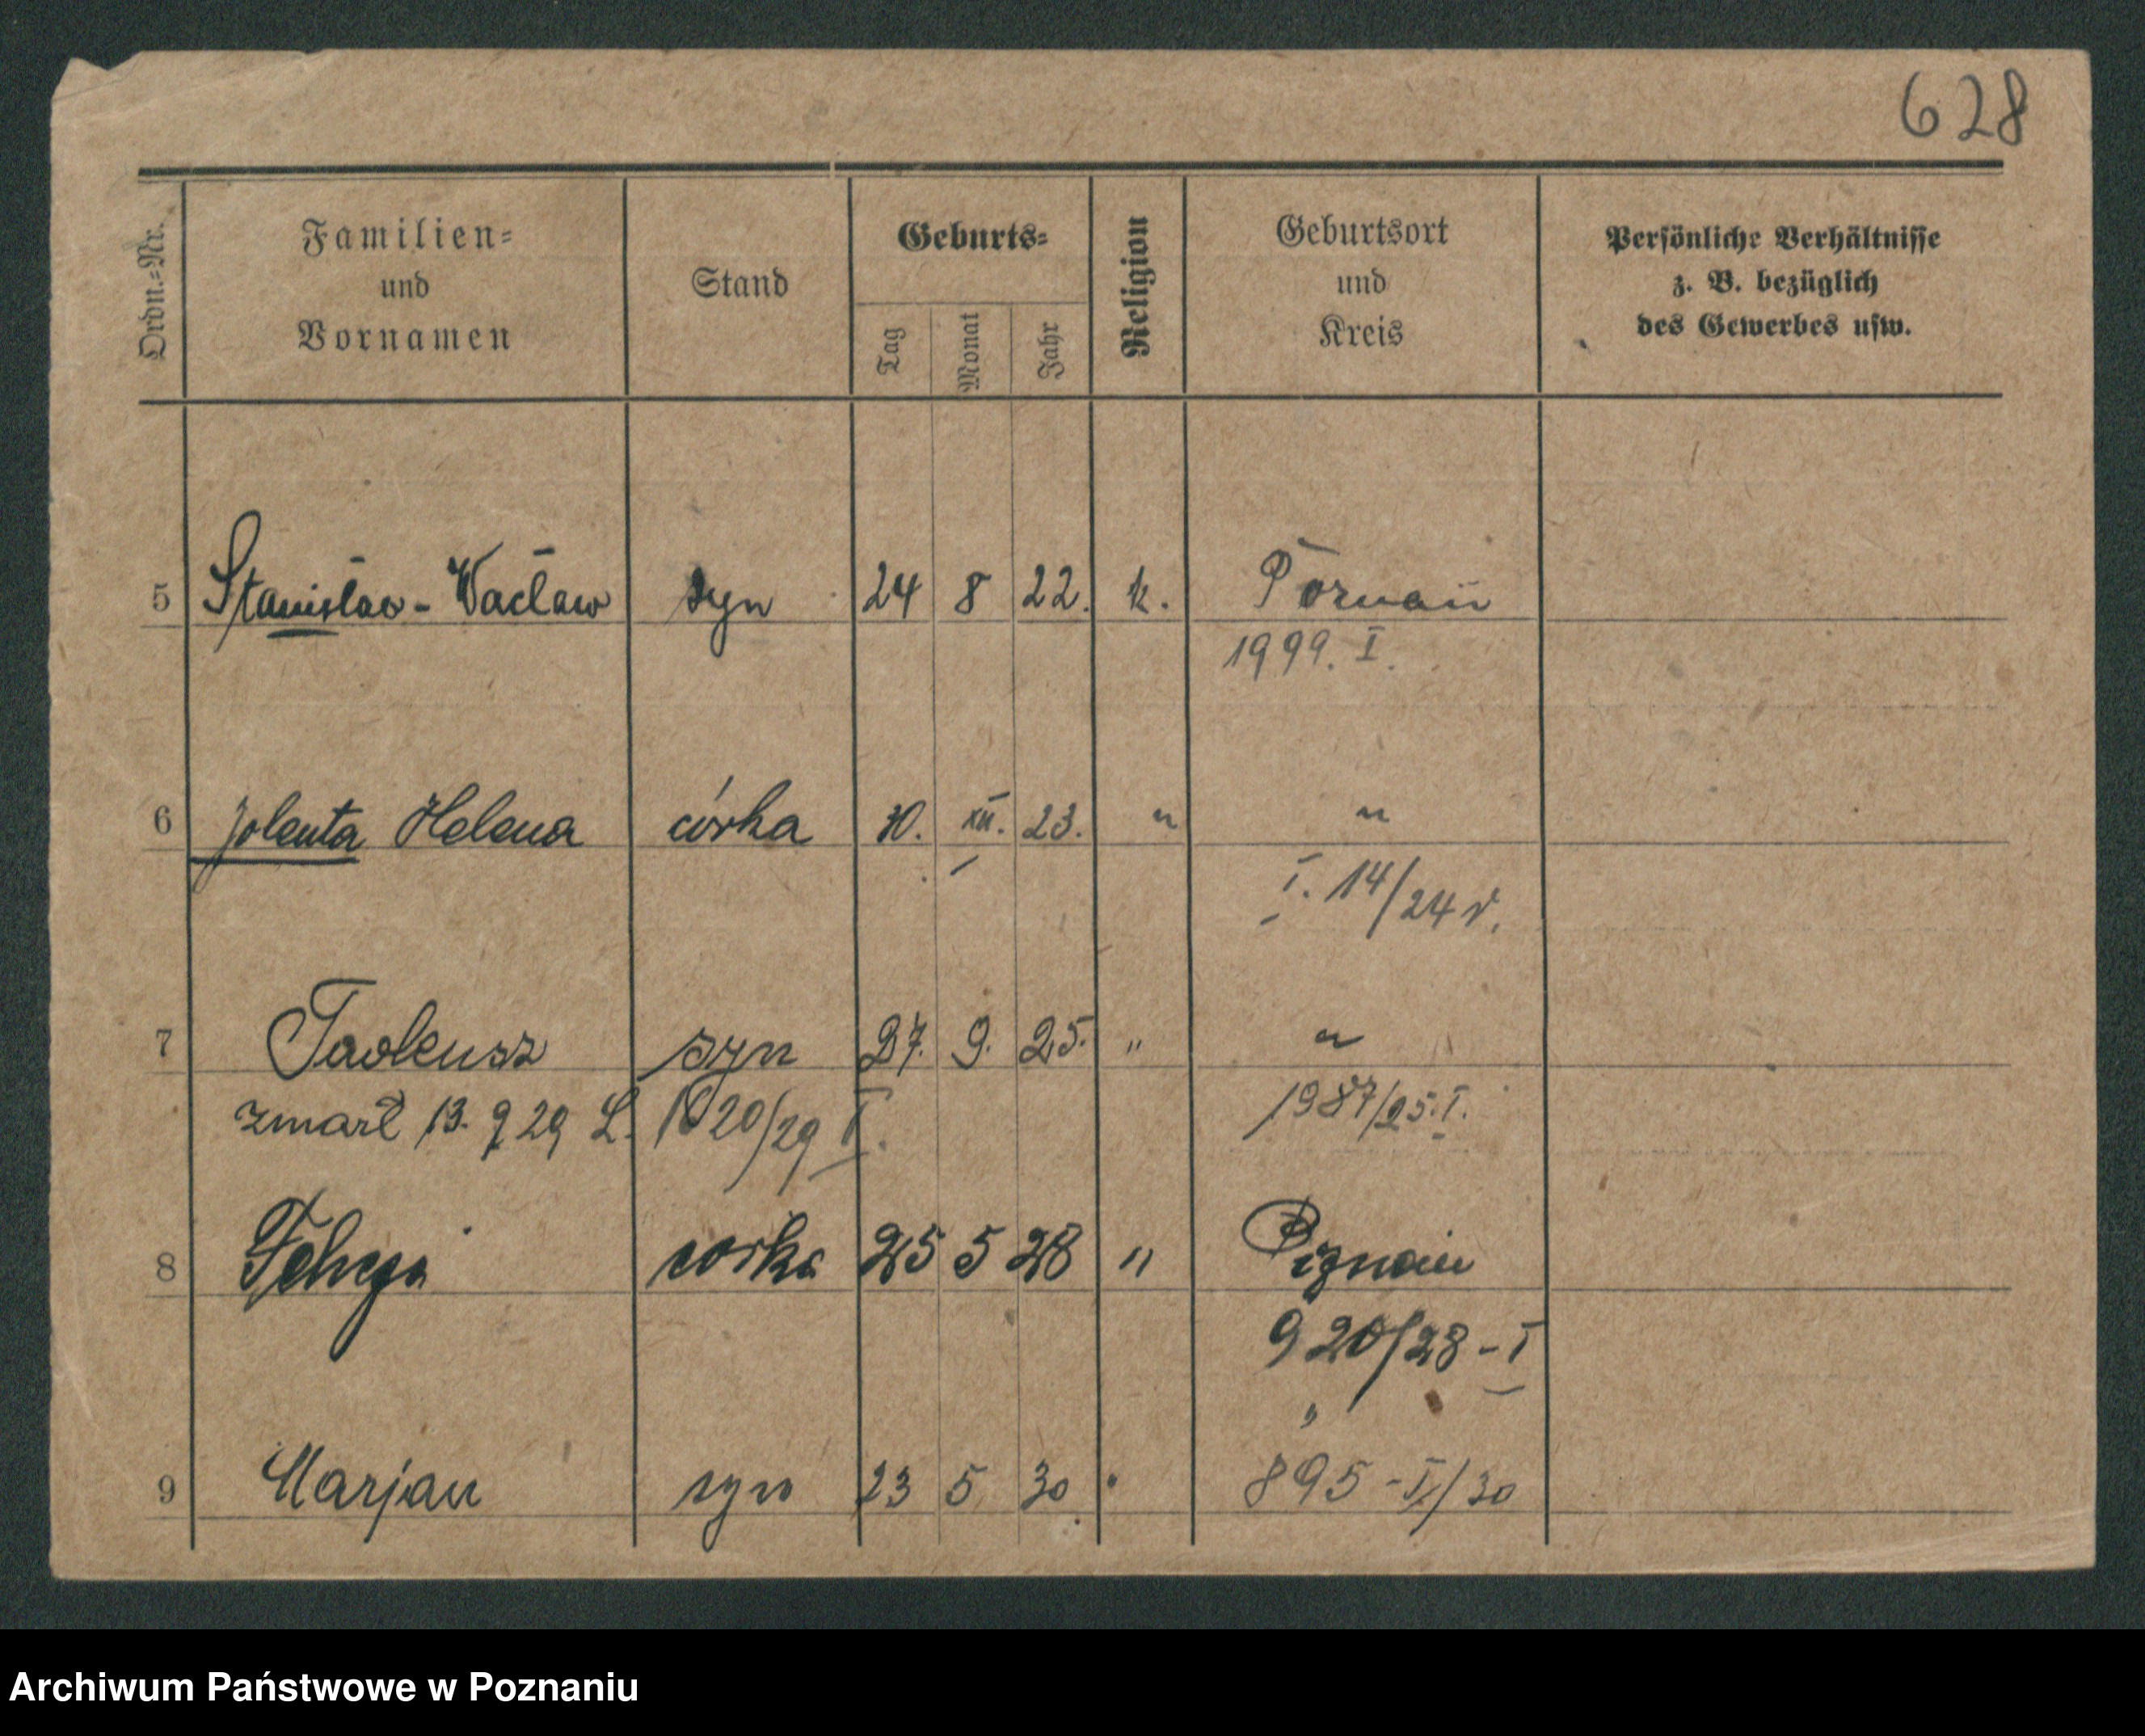 628
Ordn.=Nr.
Familien=
und
Vornamen
Stand
Geburts=
Tag
Monat
Jahr
Religion
Geburtsort
und
Kreis
Persönliche Verhältnisse
z. B. bezüglich
des Gewerbes usw.
5 Stanisław - Wacław syn 24 8 22. k. Poznań
1999. I.
6 Jolenta Helena córka 10. XII. 23. " "
I. 14/24 r.
7 Tadeusz syn 27. 9. 25. " "
zmarł 13. 9 29 L. 1020/29 I. 1987/25. I.
8 córka 25 5 28 " Poznań
920/28 - I
"
9 Marjan syn 23 5 30 " 895 - I/30
Archiwum Państwowe w Poznaniu